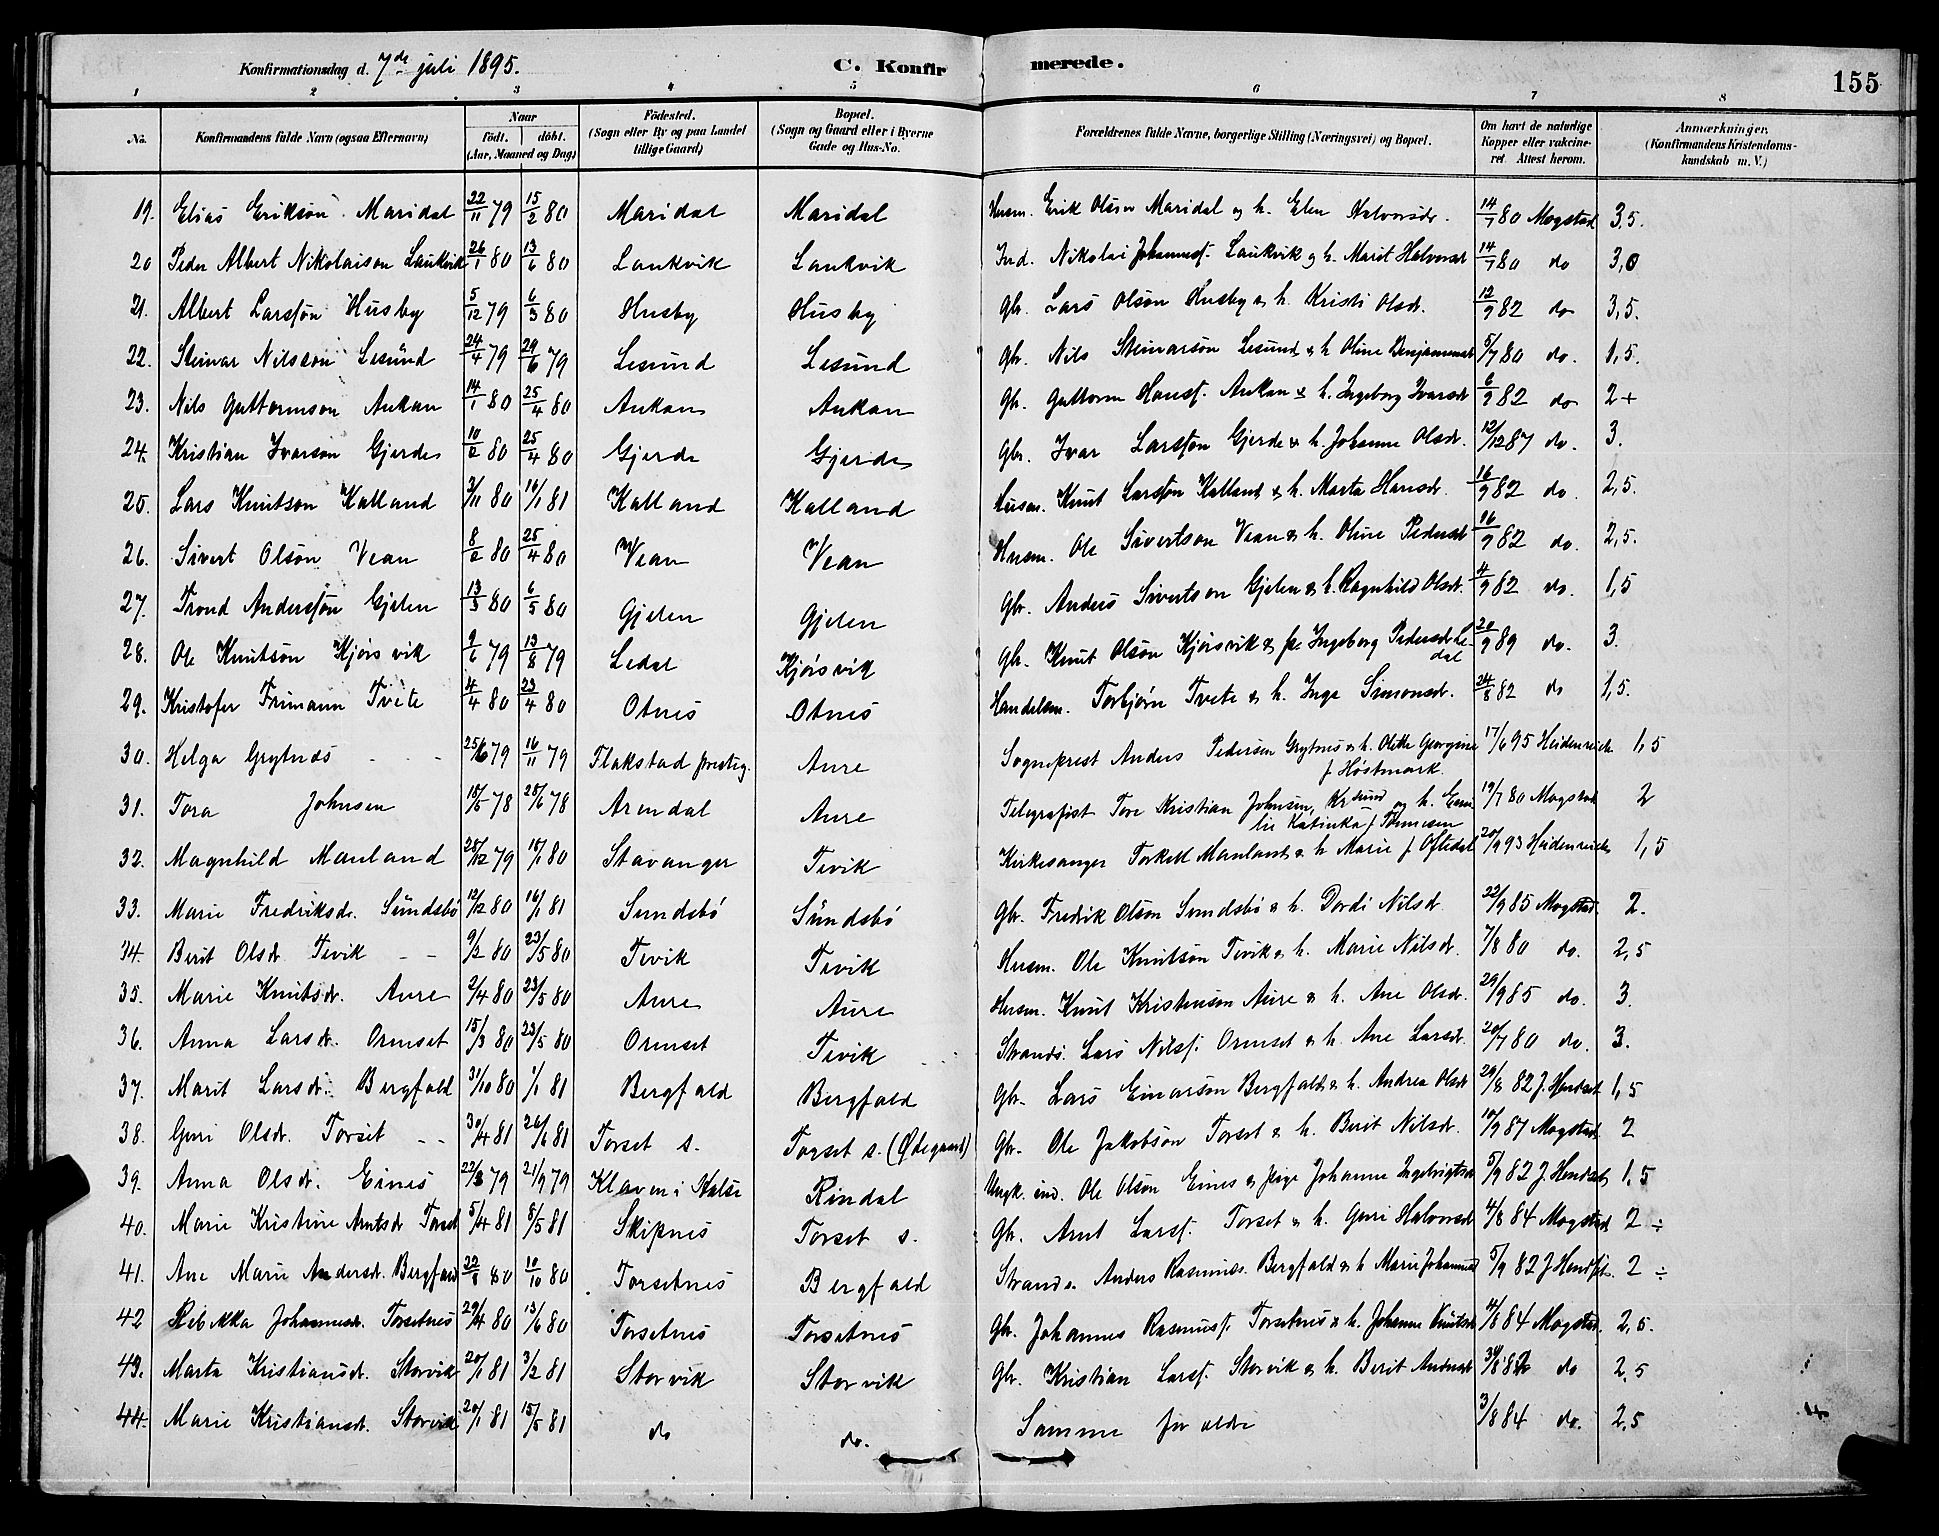 Konfirmationsdag d. 7de juli 1895. C. Konfirmerede. 155
1 2 3 4 5 6 7 8
No. Konfirmandens fulde Navn (ogsaa Efternavn) Naar födt. döbt. (Aar, Maaned og Dag) Födested. (Sogn eller By og paa Landet tillige Gaard) Bopæl. (Sogn og Gaard eller i Byerne Gade og Hus-No. Forældrenes fulde Navne, borgerlige Stilling (Næringsvei) og Bopæl. Om havt de naturlige Kopper eller vakcineret. Attest herom. Anmærkninger. (Konfirmandens Kristendomskundskab m. V.)
19. Elias Erikson Maridal 22/11 79 15/2 80 Maridal Maridal Husm. Erik Olsen Maridal & h. Elen Halvorsdr. 14/7 80 Mogstad 3,5.
20 Peder Albert Nikolaison Laukvik 26/1 80 13/6 80 Laukvik Laukvik Ind. Nikolai Johannesf. Laukvik & h. Marit Halvorsdr 14/7 80 do 3,0
21. Albert Larsson Husby 5/12 79 6/3 80 Husby Husby Gbr. Lars Olson Husby & h. Kristi Olsdr. 12/9 82 do 3,5.
22. Steinar Nilsson Lesund 24/4 79 29/6 79 Lesund Lesund Gbr. Nils Steinarson Lesund & h. Oline Benjaminsdr 5/7 80 do. 1,5.
23. Nils Guttormson Aukan 14/1 80 25/4 80 Aukan Aukan Gbr. Guttorm Hansf. Aukan & h. Ingeborg Ivarsdr 6/9 82 do 2+
24. Kristian Ivarson Gjerde 10/2 80 25/4 80 Gjerde Gjerde Gbr. Ivar Larsson Gjerde & h. Johanne Olsdr. 12/12 87 do. 3.
25. Lars Knutson Kalland 2/11 80 16/1 81 Kalland Kalland Husm. Knut Larsson Kalland & h. Marta Hansdr. 16/9 82 do. 2,5.
26. Sivert Olson Vean 8/2 80 25/4 80 Vean Vean Husm. Ole Sivertson Vean & h. Oline Pedersdr 16/9 82 do. 2,5.
27. Trond Andersson Gjelen 13/3 80 6/5 80 Gjelen Gjelen Gbr. Anders Sivertson Gjelen & h. Ragnhild Olsdr. 4/9 82 do. 1,5
28. Ole Knutson Kjörsvik 9/6 79 13/8 79 Ledal Kjörsvik Gbr. Knut Olson Kjörsvik & pe Ingeborg Pedersdr Ledal 20/9 89 do. 3.
29. Kristofer Frimann Tvete 4/4 80 23/4 80 Otnes Otnes Handelsm. Torbjørn Tvete & h. Inge Simonsdr. 24/8 82 do 1,5.
30. Helga Grytnes 25/6 79 16/11 79 Flakstad presteg. Aure Sogneprest Anders Pedersen Grytnes & h. Olette Georgine f. Høstmark. 17/6 95 Heidenreich 1,5
31. Tora Johnsen 15/5 78 25/6 78 Arendal Aure Telegrafist Tore Kristian Johnsen, Krsund og h. Emilie Katinka f. 19/7 80 Mogstad 2
32. Magnhild Mauland 28/12 79 18/1 80 Stavanger Tevik Kirkesanger Torkell Mauland & h Marie f. Oftedal 20/9 93 Heidenreich 1,5
33. Marie Fredriksdr. Sundsbö 12/12 80 16/1 81 Sundsbö Sundsbö Gbr. Fredrik Olson Sundsbö & h. Dordi Nilsdr 22/9 85 Mogstad. 2.
34. Berit Olsdr. Tevik 9/2 80 23/5 80 Tevik Tevik Husm. Ole Knutson Tevik & h. Marie Nilsdr. 7/8 80 do. 2,5
35. Marie Knutsdr. Aure 2/4 80 23/5 80 Aure Aure Husm. Knut Kristenson Aure & h. Ane Olsdr. 29/9 85 do. 3.
36. Anna Larsdr. Ormset 15/3 80 23/5 80 Ormset Tevik Strands. Lars Nilsf. Ormset & h. Ane Larsdr. 20/7 80 do. 3.
37. Marit Larsdr. Bergfald 31/10 80 1/1 81 Bergfald Bergfald Gbr. Lars Einarson Bergfald & h. Andrea Olsdr 29/8 82 J. Hendset 1,5
38. Guri Olsdr. Torset 30/4 81 26/6 81 Torset s. Torset s. (Ødegaard) Gbr. Ole Jakobson Torset & h. Berit Nilsdr. 10/9 87 Mogstad. 2
39. Anna Olsdr. Eines 22/3 79 21/9 79 Klaven i Halse Rindal Ungk. ind. Ole Olson Eines & pige Johanne Ingebrigtsdr 5/9 82 J. Hendset 1,5
40. Marie Kristine Arntsdr Torset 5/4 81 8/5 81 Skipnes Torset s. Gbr. Arnt Larsf. Torset & h. Guri Halvorsdr 4/8 84 Mogstad 2 ÷
41. Ane Marie Andersdr. Bergfald 22/8 80 10/10 80 Torsetnes Bergfald Strands. Anders Rasmuss. Bergfald & h Marie Johannesdr 5/9 82 J Hendset. 2 ÷
42 Rebekka Johannesdr. Torsetnes 29/4 80 13/6 80 Torsetnes Torsetnes Gbr. Johannes Rasmusf. Torsetnes & h. Johanne Knutsdr 4/8 84 Mogstad. 2,5.
43. Marta Kristiansdr. Storvik 20/1 81 3/2 81 Storvik Storvik Gbr. Kristian Larsf. Storvik & h. Berit Andersdr do 2,5
44. Marie Kristiansdr. Storvik 20/1 81 15/5 81 do do. Samme foreldre 3/8 84 do. 2,5